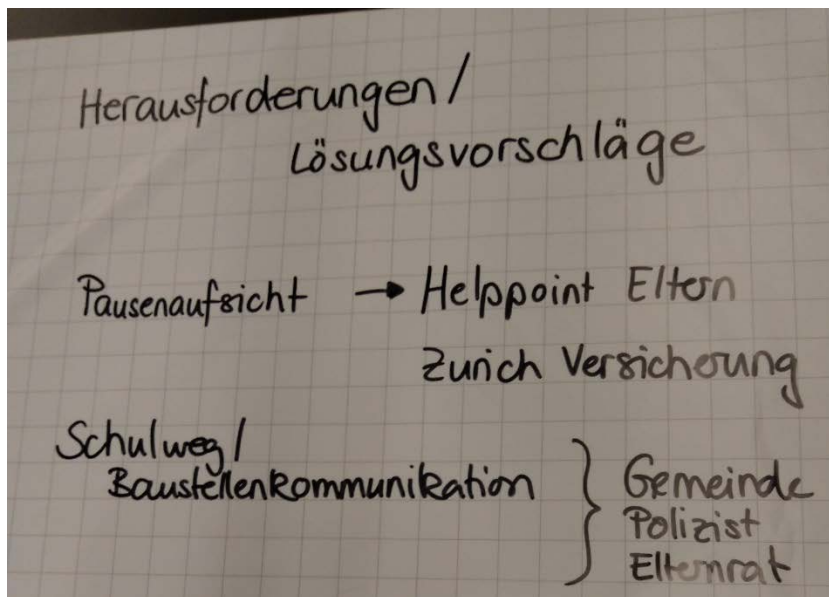 Herausforderungen /
Lösungsvorschläge
Pausenaufsicht → Helppoint Eltern
Zurich Versicherung
Schulweg /
Baustellenkommunikation } Gemeinde
Polizist
Elternrat